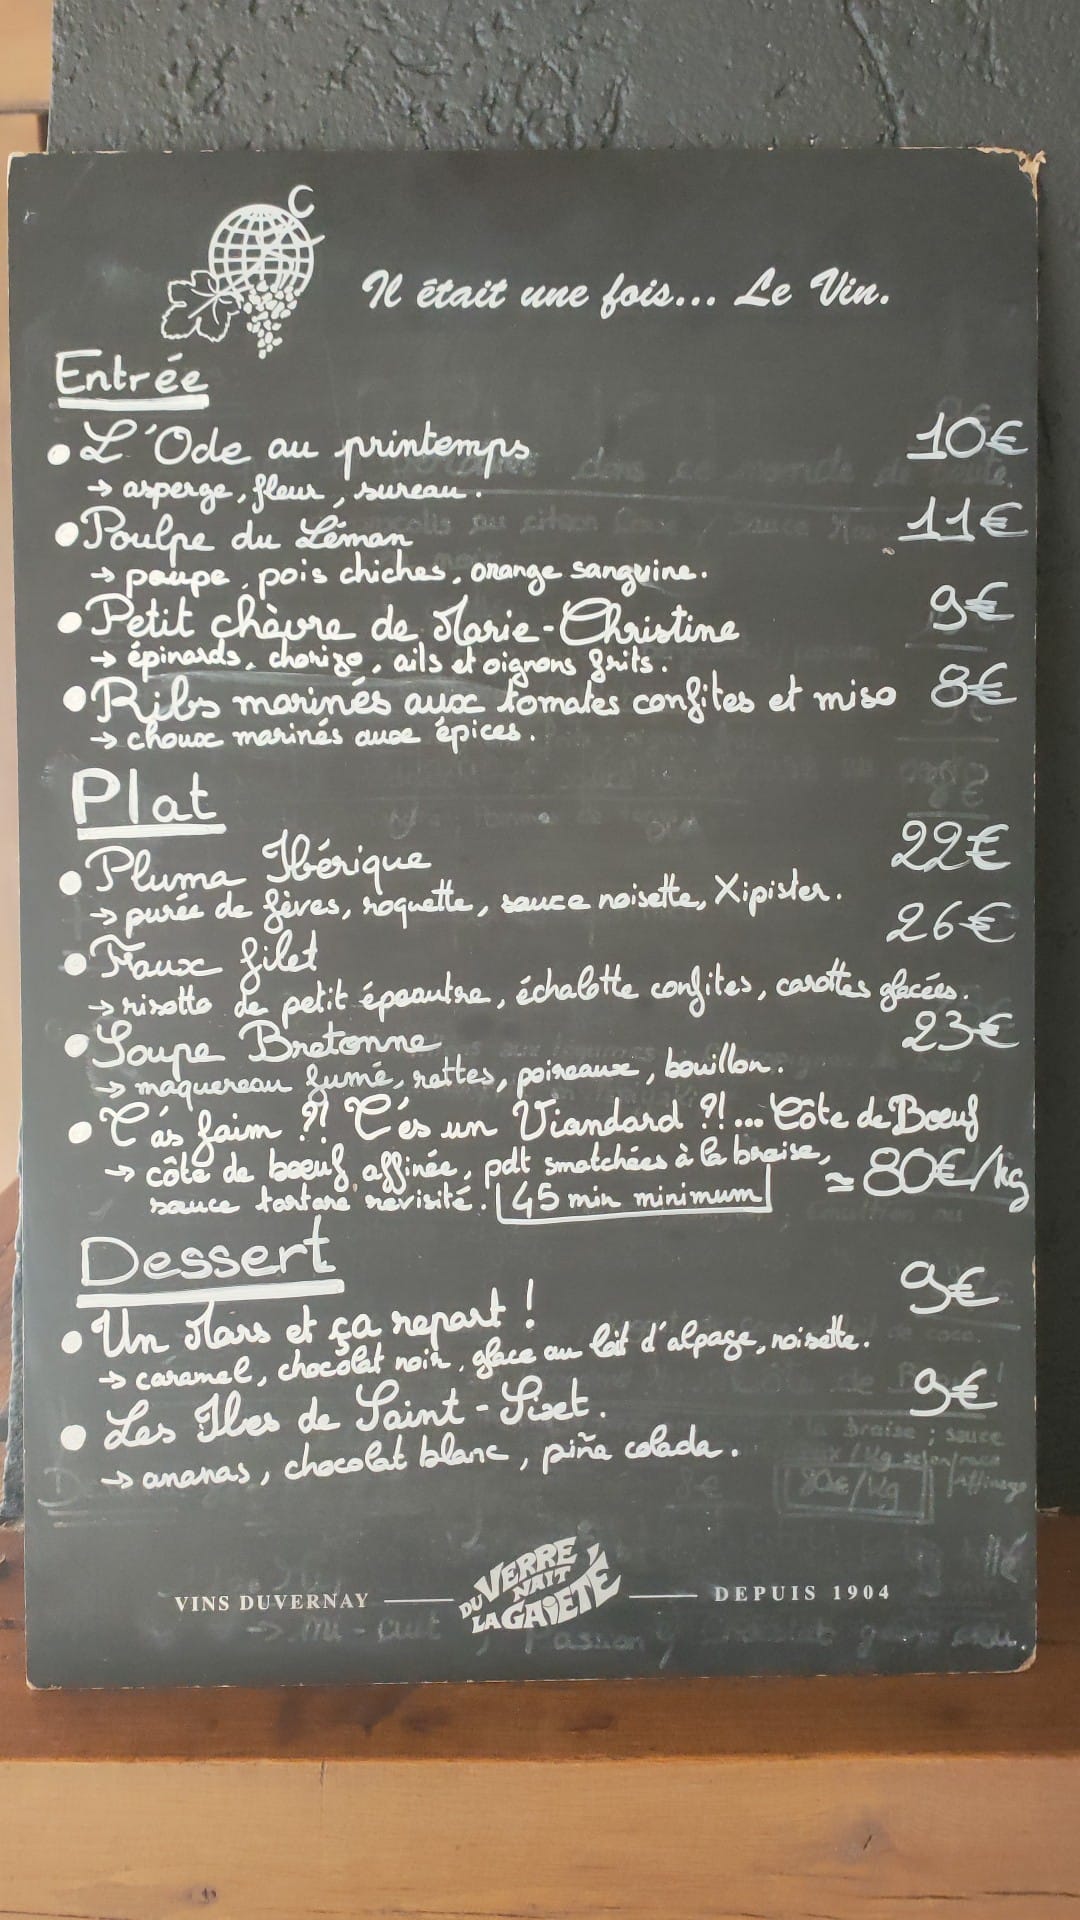 Il était une fois... Le Vin.
Entrée
• L'Ode au printemps 10€
→ asperge, fleur, sureau.
• Poulpe du Léman 11€
→ poupe, pois chiches, orange sanguine.
• Petit chèvre de Marie-Christine 9€
→ épinards, chorizo, ails et oignons frits.
• Ribs marinés aux tomates confites et miso 8€
→ choux marinés aux épices.
Plat
• Pluma Ibérique 22€
→ purée de fèves, roquette, sauce noisette, Xipister.
• Faux filet 26€
→ risotto de petit épeautre, échalotte confites, carottes glacées.
• Soupe Bretonne 23€
→ maquereau fumé, rattes, poireaux, bouillon.
• T'as faim ?! T'es un Viandard ?!... Côte de Boeuf
→ côte de boeuf affinée, pdt smatchées à la braise, ≃ 80€/kg
sauce tartare revisité. 45 min minimum
Dessert
• Un Mars et ça repart ! 9€
→ caramel, chocolat noir, glace au lait d'alpage, noisette.
• Les Iles de Saint-Sixt. 9€
→ ananas, chocolat blanc, piña colada.
VINS DUVERNAY DU VERRE NAIT LA GAIETÉ DEPUIS 1904